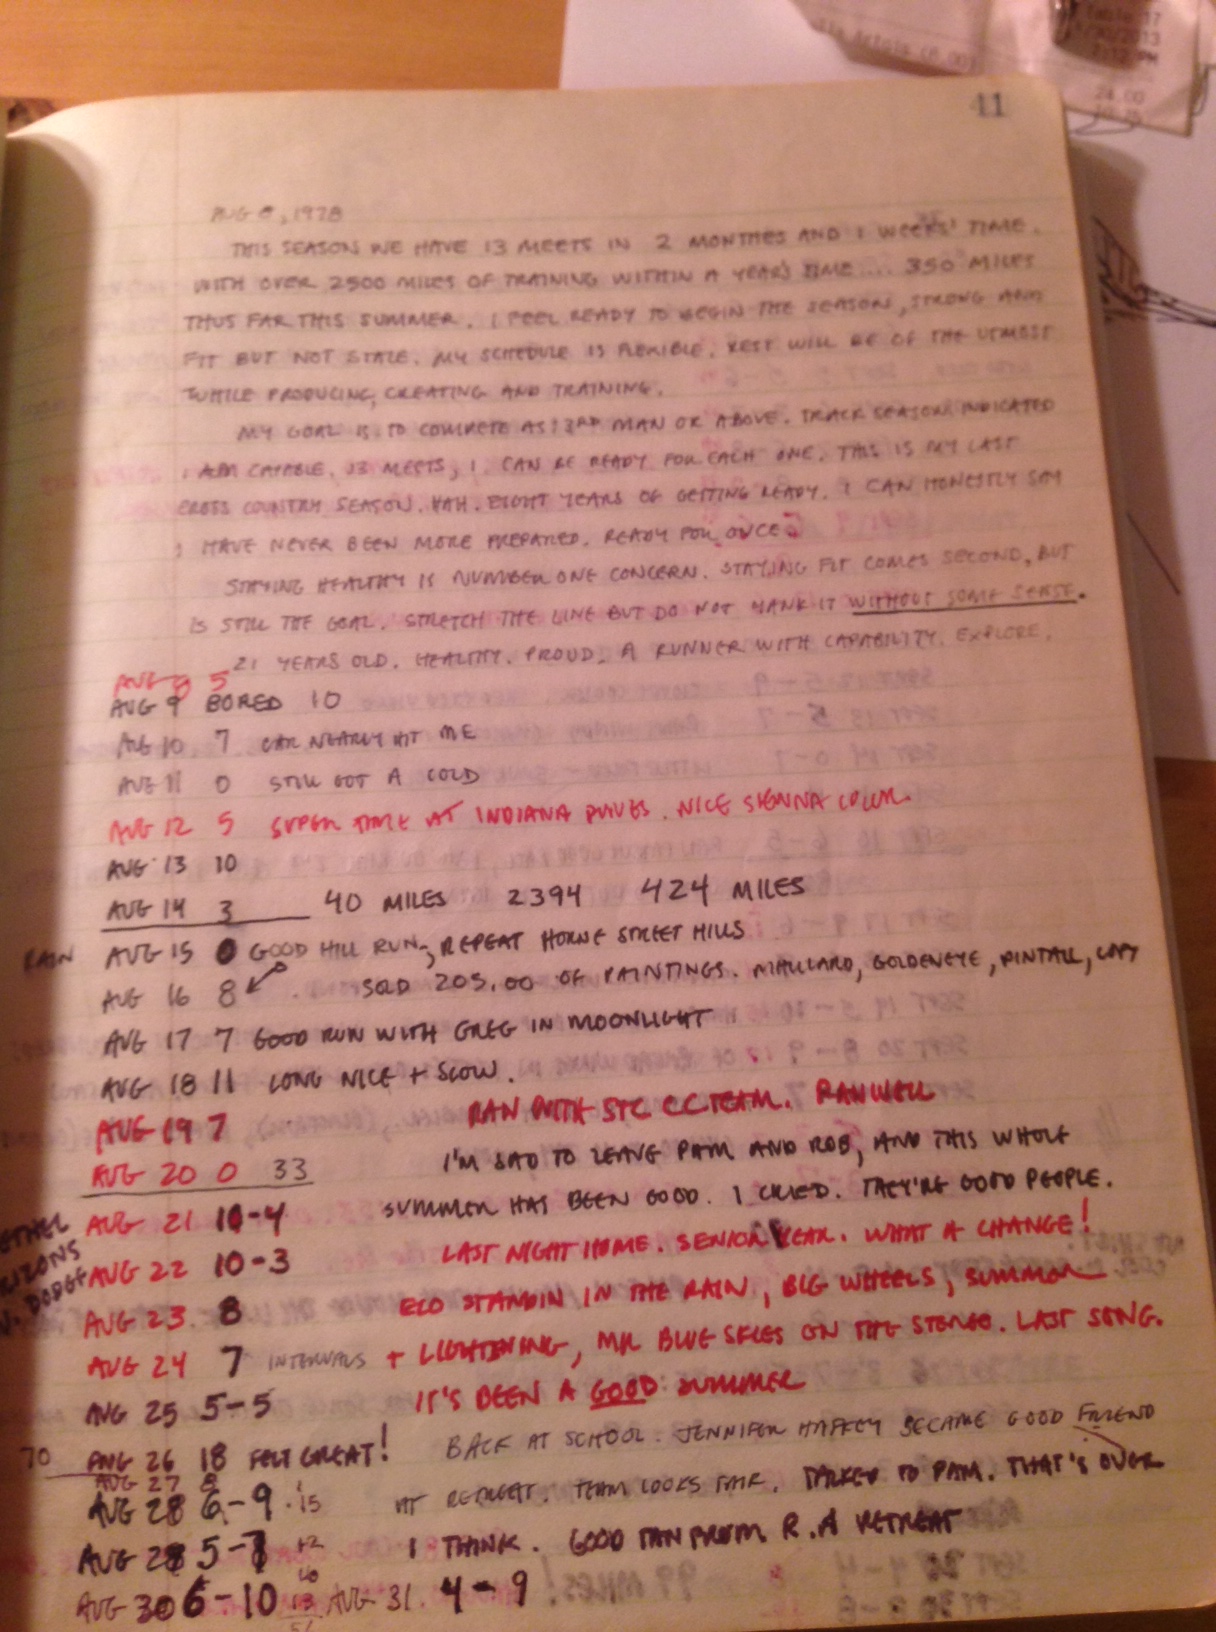 Table 17
2013
PM
24.00
41
AUG 8, 1978
THIS SEASON WE HAVE 13 MEETS IN 2 MONTHES AND 1 WEEKS' TIME.
WITH OVER 2500 MILES OF TRAINING WITHIN A YEAR'S TIME ... 350 MILES
THUS FAR THIS SUMMER. I FEEL READY TO BEGIN THE SEASON, STRONG AND
FIT BUT NOT STALE. MY SCHEDULE IS FLEXIBLE. REST WILL BE OF THE UTMOST
WHILE PRODUCING, CREATING AND TRAINING.
MY GOAL IS TO COMPETE AS 3RD MAN OR ABOVE. TRACK SEASON INDICATED
I AM CAPABLE. 13 MEETS, I CAN BE READY FOR EACH ONE. THIS IS MY LAST
CROSS COUNTRY SEASON. HAH. EIGHT YEARS OF GETTING READY. I CAN HONESTLY SAY
I HAVE NEVER BEEN MORE PREPARED. READY FOR ONCE
STAYING HEALTHY IS NUMBER ONE CONCERN. STAYING FIT COMES SECOND, BUT
IS STILL THE GOAL. STRETCH THE LINE BUT DO NOT YANK IT WITHOUT SOME SENSE.
21 YEARS OLD. HEALTHY. PROUD. A RUNNER WITH CAPABILITY. EXPLORE.
AUG 8 5
AUG 9 BORED 10
AUG 10 7 CAR NEARLY HIT ME
AUG 11 0 STILL GOT A COLD
AUG 12 5 SUPER TIME AT INDIANA DUNES. NICE SIENNA COLOR.
AUG 13 10
AUG 14 3 40 MILES 2394 424 MILES
RAIN AUG 15 0 GOOD HILL RUN, REPEAT HORNE STREET HILLS
AUG 16 8 SOLD 205.00 OF PAINTINGS. MALLARD, GOLDENEYE, PINTAIL,
AUG 17 7 GOOD RUN WITH GREG IN MOONLIGHT
AUG 18 11 LONG NICE + SLOW.
AUG 19 7 RAN WITH STC CC TEAM. RAN WELL
AUG 20 0 33 I'M SAD TO LEAVE PAM AND ROB, AND THIS WHOLE
AUG 21 10-4 SUMMER HAS BEEN GOOD. I CRIED. THEY'RE GOOD PEOPLE.
AUG 22 10-3 LAST NIGHT HOME. SENIOR YEAR. WHAT A CHANGE!
DODGE AUG 23 8 ELO STANDIN IN THE RAIN, BIG WHEELS, SUMMER
AUG 24 7 INTERVALS + LIGHTENING, MR BLUE SKIES ON THE STEREO. LAST SONG.
AUG 25 5-5 IT'S BEEN A GOOD SUMMER
70 AUG 26 18 FELT GREAT! BACK AT SCHOOL. JENNIFER BECAME GOOD FRIEND
AUG 27 8
AUG 28 6-9 15 AT RETREAT. TEAM LOOKS FAIR. TALKED TO PAM. THAT'S OVER
AUG 29 5-7 12 I THINK. GOOD TAN FROM R.A RETREAT
AUG 30 6-10 AUG 31. 4-9